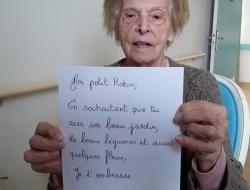 Mon petit Robin,
En souhaitant que tu
aies un beau jardin,
de beaux légumes et aussi
quelques fleurs,
Je t'embrasse